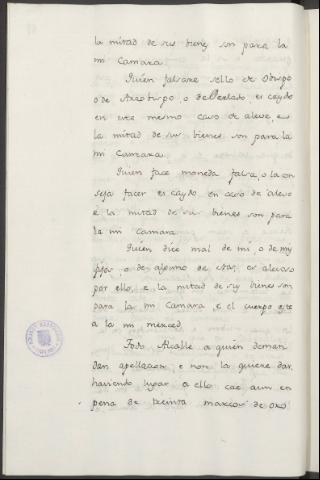 la mitad de sus bienes son para la
mi Camara.
Quien falsare sello de Obispo
o de Arzobispo, o de Perlado, es caydo
en este mismo caso de aleve, e
la mitad de sus bienes son para la
mi Camara.
Quien face moneda falsa, o la con
seja facer es caydo en caso de aleve
e la mitad de sus bienes son para
la mi Camara.
Quien dice mal de mi, o de my
fijos, o de alguno de ellos, es alevoso
por ello, e la mitad de sus bienes son
para la mi Camara, e el cuerpo este
a la mi merced.
Todo Alcalle a quien deman
dan apellacion e non la quiere dar,
haviendo lugar a ello cae aun en
pena de treinta marcos de oro